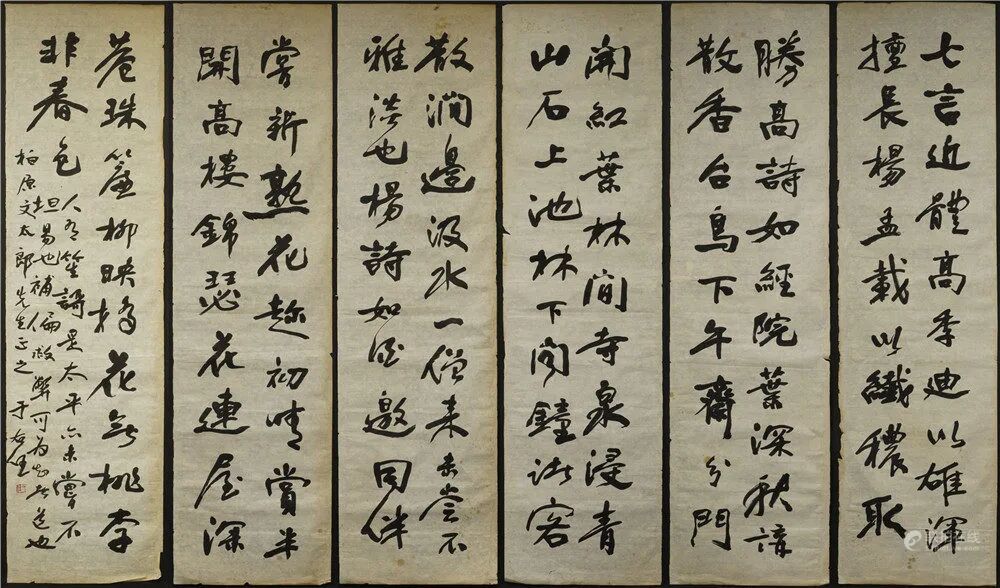 七言近體高季迪以雄渾
擅長楊孟載以纖穠取
勝高詩如經院葉深秋講
散香台鳥下午齋分門
開紅葉林間寺泉浸青
山石上池林下聞鐘諸客
散澗邊汲水一僧來未嘗不
雅淡也楊詩如酒邀同伴
嘗新熟花趁初晴賞半
開高樓錦瑟花連屋深
巷珠簾柳映橋花無桃李
非春色
人有笙謌是太平亦未嘗不
坦易也補偏救弊可為知者道也
柏原文太郎先生正之 于右任